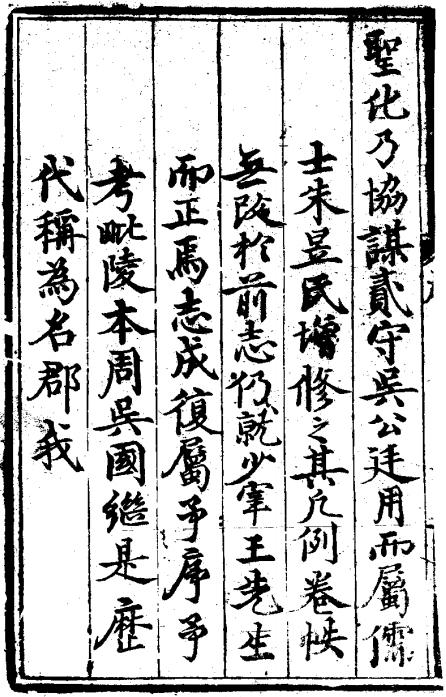 聖化乃協謀貳守吳公廷用而屬儒
士朱昱民增修之其凡例卷帙
無改於前志仍就少宰王先生
而正焉志成復屬予序予
考毗陵本周吳國繼是歷
代稱為名郡我